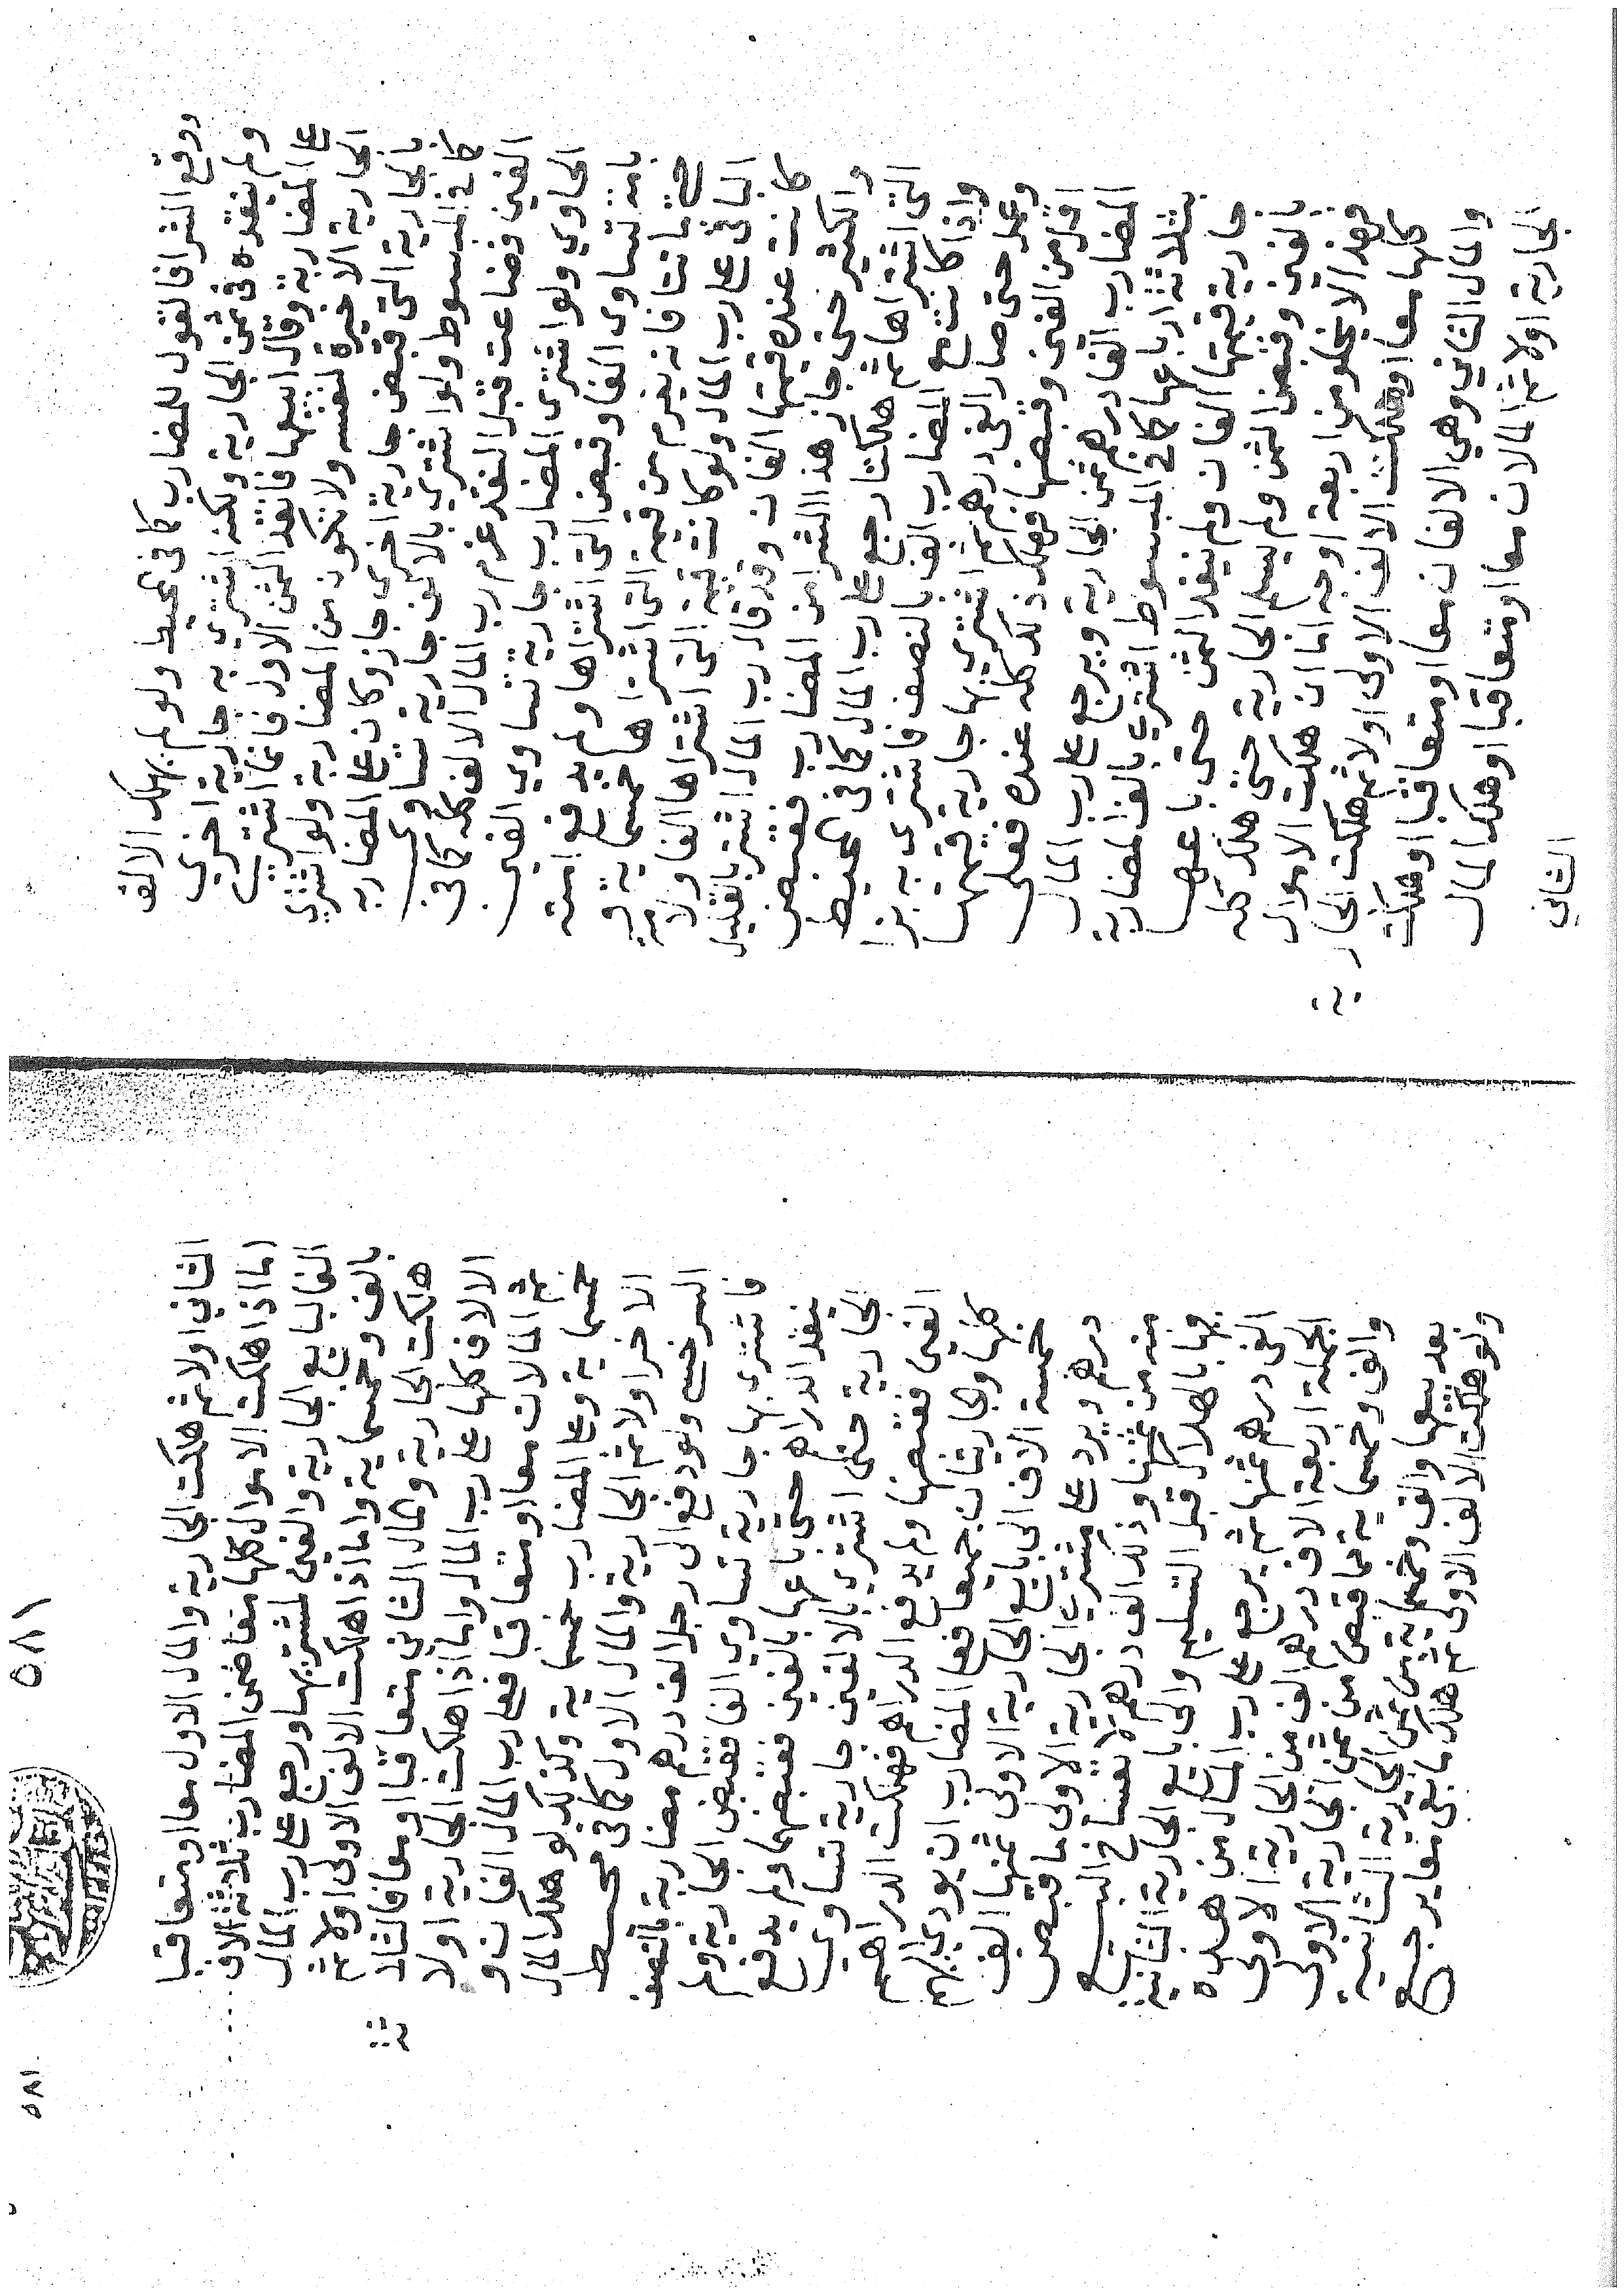 ووقع الشرا فالقول للمضارب كا فى محيط ولو لم يهلك الالف
ولم ينقده فى ثمن الجارية ولكنه اشترى به جارية اخرى
على المضاربة وقال ابيعها فانقد الثمن الاول فانما اشترى
الجارية الاخيرة لنفسه ولا تكون من المضاربة ولو اشترى
بالجارية التى قبض جارية اخرى جاز وكان على المضاربه
كا فى المبسوط ولو اشترى بالالف جارية تساوى
الفين فضاعت قبل النقد غرم رب المال الالف كله كا فى
الحاوي ولو اشترى المضارب جارية تساوي الفين
بامة تساوى الفا وقبض التى اشتراها ولم يدفع امته
حتى ماتتا فانه يغرم من قيمة التى اشتراها خمسماية و
الباقى على رب المال ولو كانت قيمة التى اشتراها الفا والامة
كانت عنده قيمتها الفان وقد قال رب المال اشتر بالقليل
والكثير حتى جاز هذا الشرا من المضارب فقبض
التى اشتراها ثم هلكتا رجع على رب المال كا فى محيط
واذا كانت مع المضارب الف بالنصف فاشترى به بزا
وعمل حتى صار الفى درهم ثم اشترى بها جارية قيمتها
اقل من الفين وقبضها فهلك ذلك كله عنده فعلى
المضارب الفا درهم ثمن الجارية ويرجع على رب المال
بثلاثة ارباعها كا فى المبسوط اشترى بالف المضاربة
جارية قيمتها الفان ولم ينقد الثمن حتى باعها
بالفين وقبض الثمن ولم يسلم الجارية حتى هلك كله
فهذا لا يخلو من اربعة اوجه اما ان هلكت الاموال
كلها معا او هلكت الالف الاولى اولا ثم هلكت الجارية
والمال الثانى وهى الالفان معا او متعاقبا او هلكت
الجارية اولا ثم المالان معا او متعاقبا او هلك المال
الثانى
١٨٥
الثانى اولا ثم هلكت الجارية والمال الاول معا او متعاقبا
اما اذا هلكت الاموال كلها معا ضمن المضارب ثلاثة الاف
الفا لبايع الجارية والفين لمشتريها ورجع على رب المال
بالف وخمسماية واما اذا هلكت الالف الاولى اولا ثم
هلكت الجارية والمال الثانى متعاقبا او معا فالثلاثة
الالاف كلها على رب المال واما اذا هلكت الجارية اولا
ثم المالان معا او متعاقبا فعلى رب المال الفان و
خمسماية وعلى المضارب خمسماية وكذلك لو هلك المال
الاخر اولا ثم الجارية والمال الاول كا فى محيط
السرخسى ولو دفع الى رجل الف درهم مضاربة بالنصف
فاشترى بها جارية تساوى الفا فقبض الجارية ولم
ينقد الدراهم حتى باعها بالفين فقبضهما ولم يدفع
الجارية حتى اشترى بالالفين جارية تساوى
الفين فقبضها ولم يدفع الدراهم فهلكت الدراهم
كلها والجاريتان جميعا فعلى المضارب ان يودى
خمسة الاف الى بايع الجارية الاولى ثمنها الف
درهم ويرد على مشترى الجارية الاولى ما قبض
منه من ثمنها وذلك الفا درهم لانفساخ البيع
فيها بالهلاك قبل التسليم والى بايع الجارية الثانية
الفى درهم ثمنها ثم يرجع على رب المال من هذه
الجملة اربعة الاف درهم الف من الجارية الاولى
والف وخمسماية مما قبض من ثمن الجارية الاولى
بعد بيعها والف وخمسماية من ثمن الجارية الثانية
ولو هلكت الالف الاولى ثم هلك ما بقى معا يرجع
١٨٥